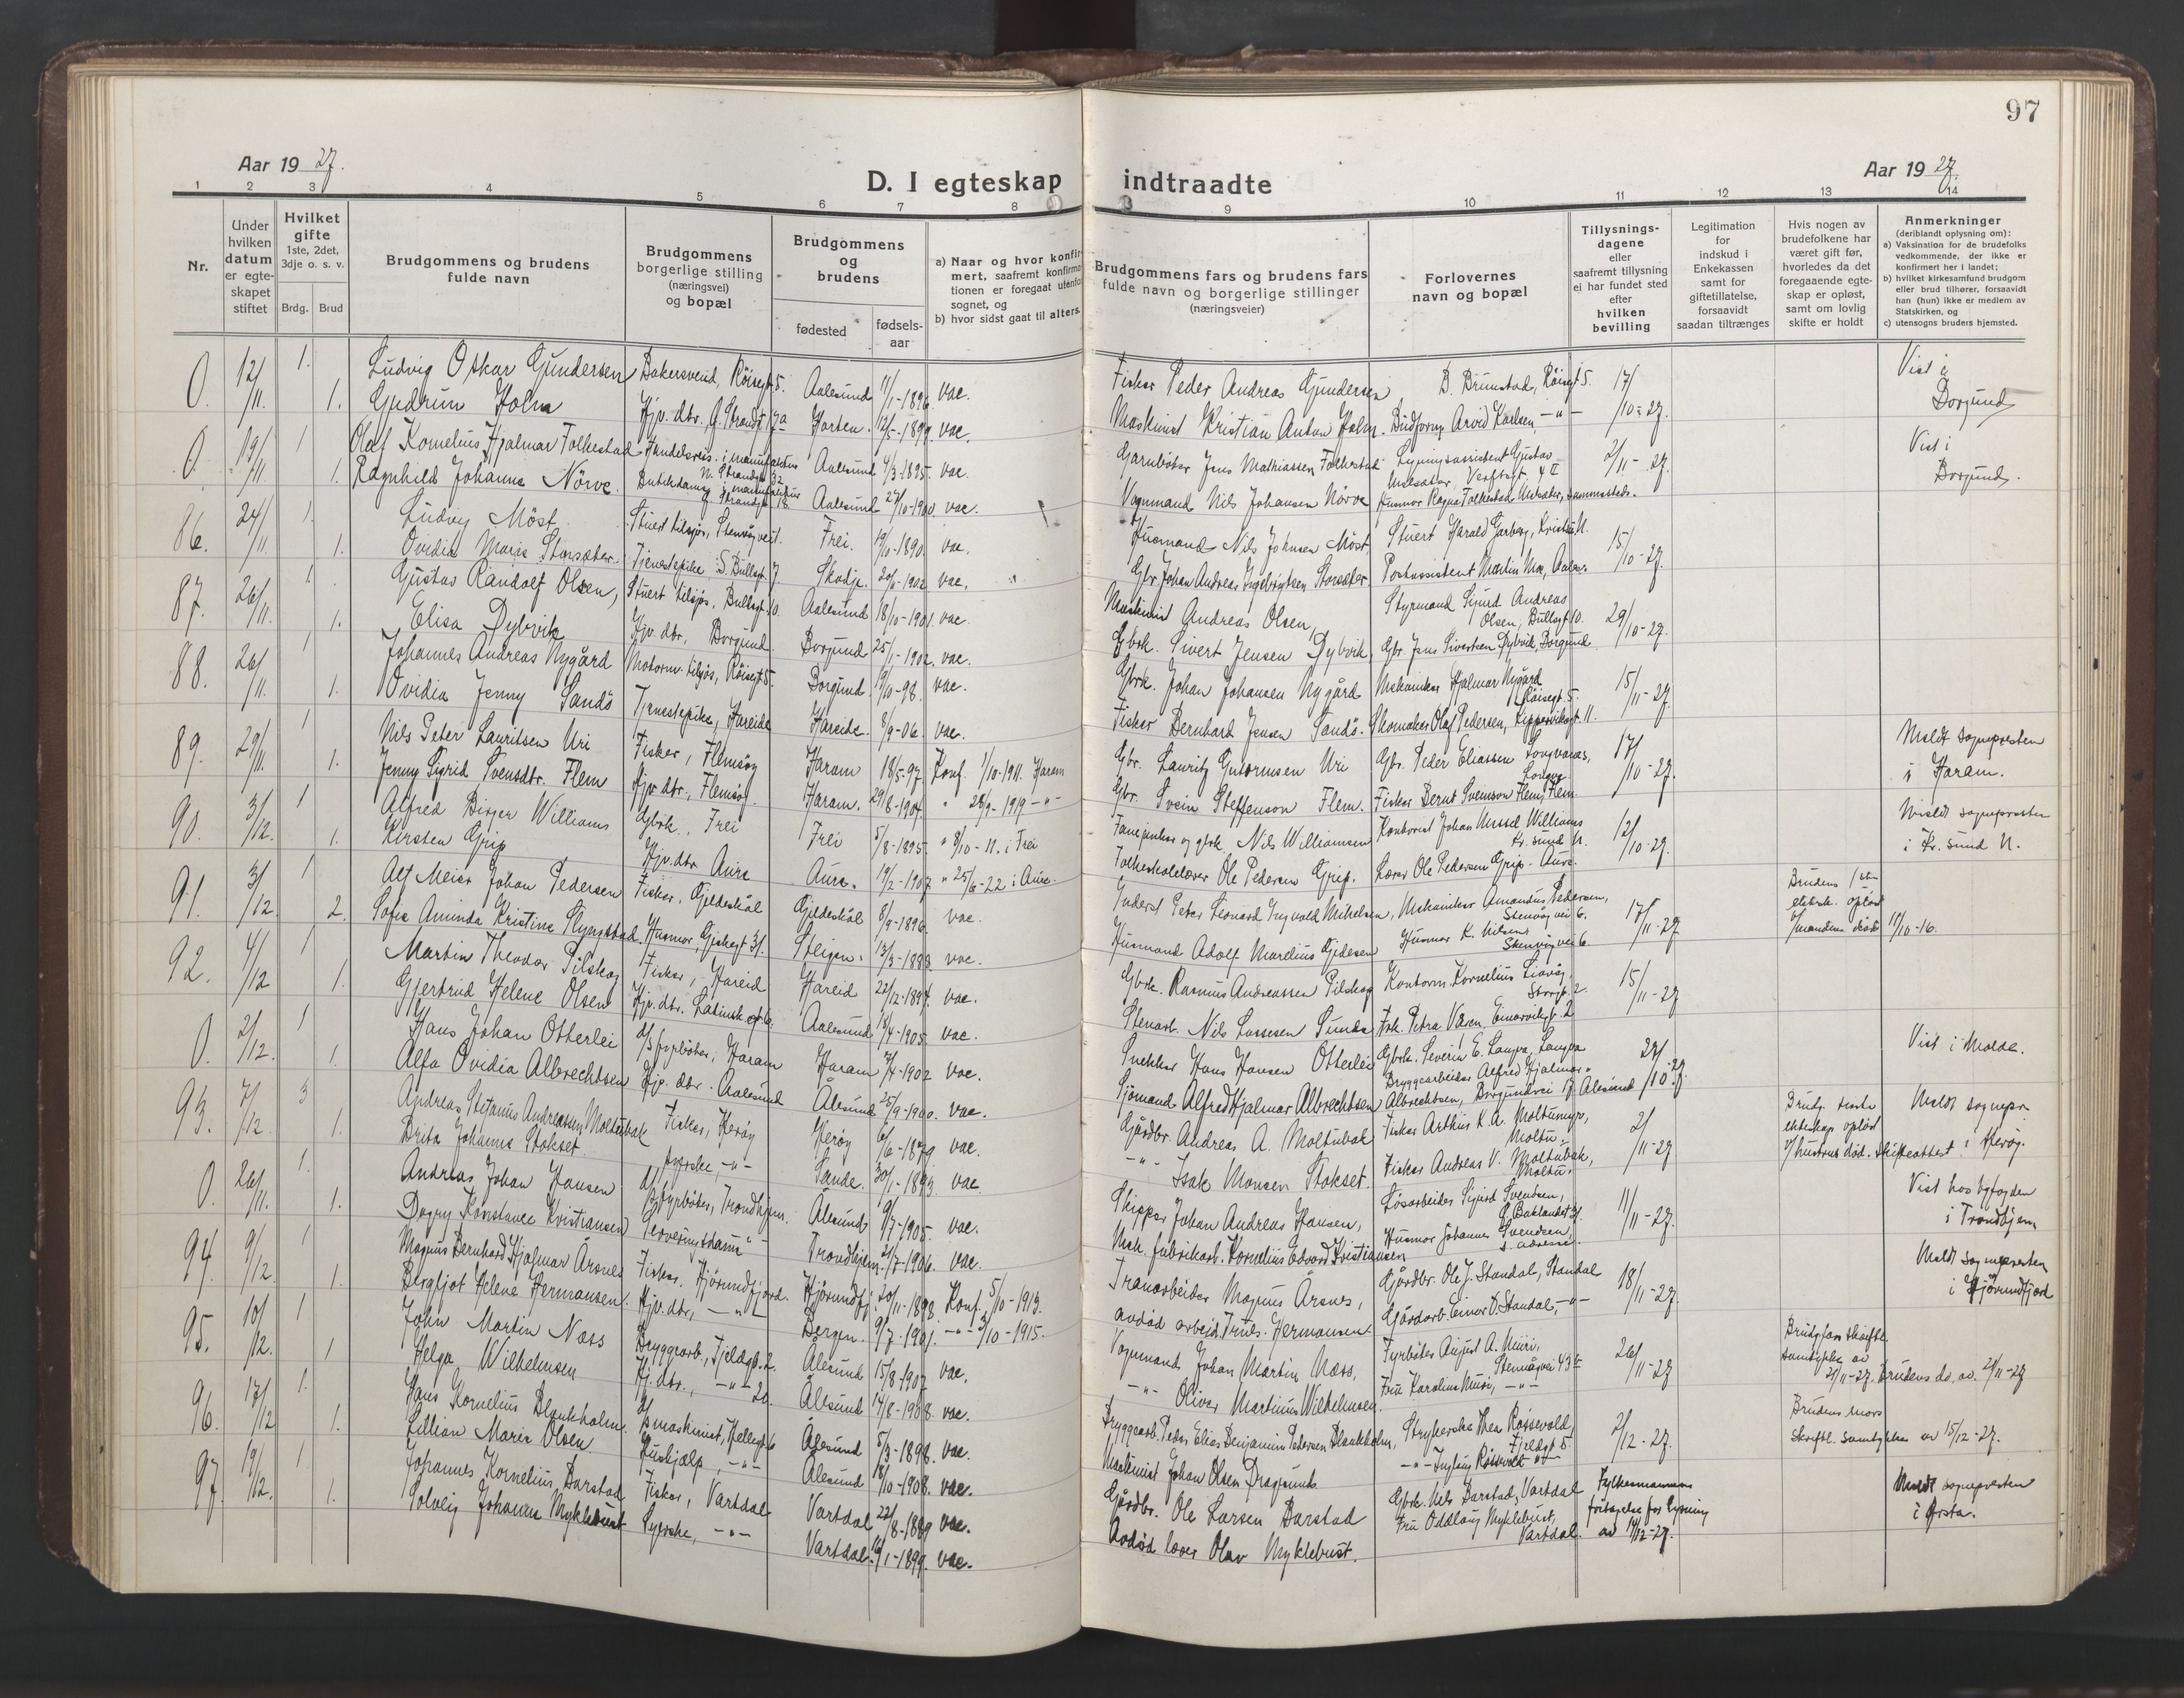 97
Aar 1927.
D. I egteskap
indtraadte
Aar 1927.
1 2 3 4 5 6 7 8
9 10 11 12 13 14
Nr.
Under hvilken datum er egteskapet stiftet
Hvilket gifte 1ste, 2det, 3dje o. s. v.
Brdg. Brud
Brudgommens og brudens fulde navn
Brudgommens borgerlige stilling (næringsvei) og bopæl
Brudgommens og brudens
fødested
fødselsaar
a) Naar og hvor konfirmert, saafremt konfirmationen er foregaat utenfor sognet, og
b) hvor sidst gaat til alters.
Brudgommens fars og brudens fars fulde navn og borgerlige stillinger (næringsveier)
Forlovernes navn og bopæl
Tillysningsdagene eller saafremt tillysning ei har fundet sted efter hvilken bevilling
Legitimation for indskud i Enkekassen samt for giftetillatelse, forsaavidt saadan tiltrænges
Hvis nogen av brudefolkene har været gift før, hvorledes da det foregaaende egteskap er opløst, samt om lovlig skifte er holdt
Anmerkninger (deriblandt oplysning om):
a) Vaksination for de brudefolks vedkommende, der ikke er konfirmert her i landet;
b) hvilket kirkesamfund brudgom eller brud tilhører, forsaavidt han (hun) ikke er medlem av Statskirken, og
c) utensogns bruders hjemsted.
0. 12/11. 1. Ludvig Oskar Gundersen Bakersvend, Röisegt 5. Aalesund 11/1-1896. vac. Fisker Peder Andreas Gundersen B. Brunstad, Röisegt 5. 17/10-27. Viet i Borgund
1. Gudrun Holm Hjv. dtr. G. Strandt 17a Horten. 12/5-1899. vac. Maskinist Kristian Anton Holm. Budform. Arvid Karlsen, -"-
0. 19/11. 1. Olaf Kornelius Hjalmar Folkestad Handelsreis. i manufaktur N. Strandgt 32 Aalesund 4/3-1895. vac. Garnböter Jens Mathiassen Folkestad Ligningsassistent Gustav Verftsgt. 4 II 2/11-27. Viet i Borgund.
1. Ragnhild Johanne Nörve. Butikdame i manufaktur G. Strandgt. 18. Aalesund 27/10-1900. vac. Vognmand Nils Johansen Nörve Husmor Ragna Folkestad
86. 24/11. 1. Ludvig Möst Stuert tilsjös, Stenvågvei 1. Frei. 19/10-1890. vac. Husmand Nils Johnsen Möst Stuert Harald Garberg, Kristians. N. 15/10-27.
1. Ovidia Marie Storsæter. Tjenestepike, S. Bullsgt. 7 Skodje. 20/6-1902. vac. Gbr. Johan Andreas Ingebrigtsen Storsæter. Postassistent Martin Moe, Aalesr.
87. 26/11. 1. Gustav Randolf Olsen, Stuert tilsjös. Bullsgt. 10. Aalesund 18/10-1901. vac. Maskinist Andreas Olsen, Styrmand Sjurd Andreas Olsen, Bullsgt 10. 29/10-27.
1. Elisa Dybvik Hjv. dtr., Borgund Borgund 25/1-1902. vac. Gbrk. Sivert Jensen Dybvik Gbr. Jens Sivertsen Dybvik, Borgund.
88. 26/11. 1 Johannes Andreas Nygård Motorm. tilsjös, Röisegt 5. Borgund. 19/11-98. vac. Gbrk. Johan Johansen Nygård Mekaniker Hjalmar Nygård Röisegt. 5. 15/11-27
1. Ovidia Jenny Sandö Tjenestepike, Hareide Hareide. 8/9-06. vac. Fisker Bernhard Jensen Sandö. Skomaker Olaf Pedersen, Kipperviksgt. 11.
89. 29/11. 1 Nils Peter Lauritsen Uri Fisker, Flemsöy Haram 18/5-97. Konf. 1/10-1911. Haram Gbr. Lauritz Guttormsen Uri Gbr. Peder Eliassen Longvanes, 17/10-27. Meldt sognepresten i Haram.
1. Jenny Sigrid Svensdtr. Flem Hjv dtr., Flemsöy. Haram. 29/8-1904. " 28/9-1919 -"- Gbr. Svein Steffenson Flem. Fisker Bernt Svenson Flem, Flem.
90. 3/12. 1 Alfred Birger Williams Gbrk., Frei Frei 5/8-1895. " 8/10-11. i Frei Fanejunker og gbrk. Nils Williamsen Kontorist Johan Wessel Williams Kr. sund N. 12/10-27. Meldt sognepresten i Kr. sund N.
1. Kirsten Grip Hjv. dtr Aure Aure. 19/2-1907 " 25/6-22 i Aure. Folkeskolelærer Ole Pedersen Grip. Lærer Ole Pedersen Grip - Aure.
91. 3/12. 1 Alf Meier Johan Pedersen Fisker, Gjildeskål Gjildeskål 8/9-1896. vac. Inderst Peter Leonard Ingvald Mikelsen, Mekaniker Amandus Pedersen, Stenvågvei 6. 17/11-27 Brudens 1ste ektesk. opløst v/mandens død 11/10-16.
2. Sofie Aminda Kristine Flyngstad. Husmor, Giskegt 31. Steigen. 13/3-1888. vac. Husmand Adolf Marelius Gjidesen Husmor K. Nilsen Stenvågvei 6.
92. 4/12 1 Martin Theodor Pilskog Fisker, Hareid Hareid 22/12-1894. vac. Gbrk. Rasmus Andreassen Pilskog Kontorm. Kornelius Liavåg Storgt. 2. 15/11-27
1. Gjertrud Helene Olsen Hjv. dtr. Latinsk.gt 6. Aalesund 14/4-1905. vac. Stenarb. Nils Lassesen Sunde Frk. Petra Væren, Einarvikgt. 2
0. 2/12. 1 Hans Johan Otterlei d/s fyrböter, Haram Haram 7/4-1902 vac. Snekker Hans Hansen Otterlei Gbrk. Severin E. Longva, Longva 27/10-27 Viet i Molde.
1. Alfa Ovidia Albrechtsen Hjv. dtr. Aalesund Ålesund 25/9-1900. vac. Sjömand Alfred Hjalmar Albrechtsen Bryggearbeider Alfred Hjalmar Albrechtsen, Borgundvei 17 Alesund
93. 7/12. 3 Andreas Stefanus Andreassen Moltubak Fisker, Heröy Heröy 6/6-1879. vac. Gårdbr. Andreas A. Moltubak Fisker Arthur K. A. Moltumyr, Moltu 2/11-27 Brudg. siste ekteskap opløst v/hustrus død. Skifteattest. Meldt sognepr. i Herøy.
1. Brita Johanne Stokset. syerske, -"- Sande. 30/1-1893. vac -"- Isak Monsen Stokset. Fisker Andreas V. Moltubak, Moltu.
0. 26/11. 1. Andreas Johan Hansen d/s fyrböter, Trondhjem. Ålesund 9/7-1905. vac. Skipper Johan Andreas Hansen, Løsarbeider Sigurd Svendsen, Ø. Baklandet 31. 11/11-27. Viet hos byfogden i Trondhjem
1. Dagny Konstance Kristiansen Serveringsdame -"- Trondhjem. 21/7-1906. vac. Mek. fabrikarb. Kornelius Edvard Kristiansen Husmor Johanne Svendsen, s. adresse.
94. 9/12. 1 Magnus Bernhard Hjalmar Årsnes Fisker. Hjörundfjord. Hjörundfj. 20/11-1898. Konf. 5/10-1913. Tranarbeider Magnus Årsnes, Gårdbr. Ole J. Standal, Standal 18/11-27. Meldt sognepresten i Hjörundfjord
1. Bergljot Helene Hermansen. Hjv. dtr, -"- Bergen. 9/7-1901. -"- 3/10-1915. avdød arbeid. Truls. Hermansen. Gårdarb. Einar D. Standal, -"-
95. 10/12. 1 John Martin Næss Bryggearb., Fjeldgt. 2. Ålesund 15/8-1907 vac. Vognmand Johan Martin Næss, Fyrböter August A. Muri, Stenvågvei 43 II 26/11-27 Brudgoms skriftl. samtykke av 21/11-27. Brudens do. av. 21/11-27
1 Helga Wilhelmsen Hj. dtr., -"- 20. Ålesund 14/8-1908. vac. -"- Oliver Martinius Wilhelmsen. Fru Karoline Muri, -"-
96. 17/12 1. Hans Kornelius Blankholm. d/s maskinist, Hellegt. 6 Ålesund 5/3-1898. vac. Bryggearb. Peder Elias Benjamin Pedersen Blankholm, Strykerske Thea Røssevold, Fjeldgt 5. 2/12-27. Brudens mors skriftl. samtykke av 15/12-27.
1. Lillian Marie Olsen. Hushjælp, -"- Ålesund 18/10-1908. vac. Maskinist Johan Olsen Dragsund -"- Røssevold -"-
97. 19/12. 1. Johannes Kornelius Barstad Fisker, Vartdal Vartdal 22/8-1889 vac. Gårdbr. Ole Larsen Barstad Gbrk. Nils Barstad, Vartdal Fylkesmannens fritagelse for lysning av 17/12-27. Meldt sognepresten i Ørsta.
1. Solveig Johanne Myklebust Syerske, -"- Vartdal. 16/1-1899. vac. Avdød lærer Olav Myklebust. Fru Oddlaug Myklebust, Vartdal.